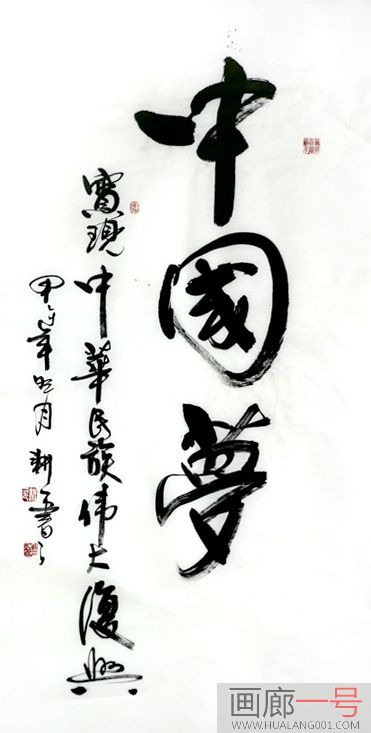 中國夢
實現中華民族伟大復興
甲午年
月耕
書
画廊一号
WWW.HUALANG001.COM